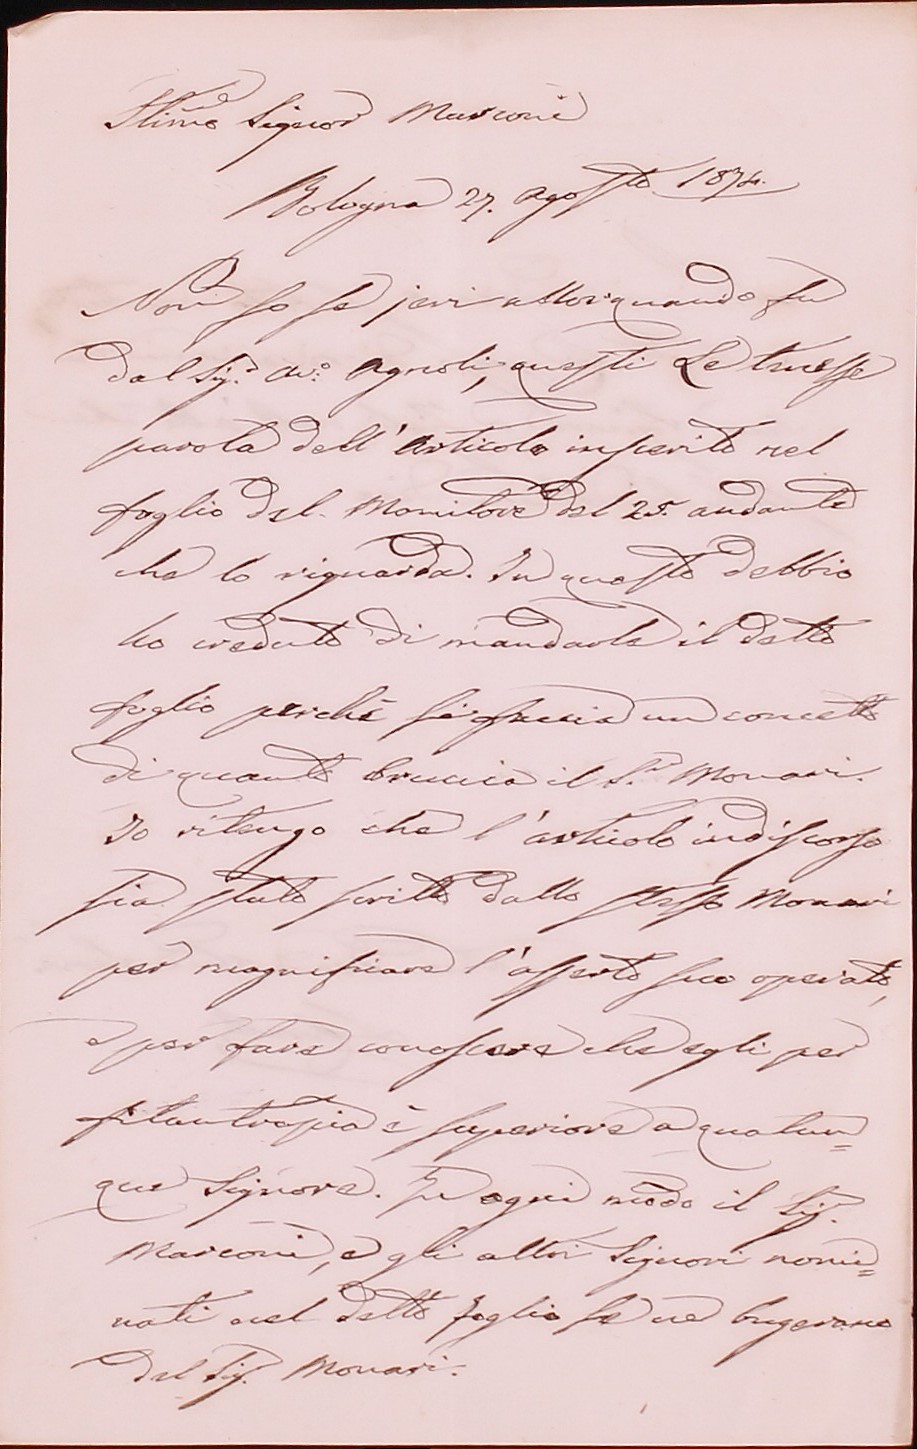 Ill.mo Signor Marconi
Bologna 27. Agosto 1874.
Non so se jeri allorquando fu
dal Sig.r Av.o Agnoli, questi Le tenesse
parola dell'articolo inserito nel
foglio del Monitore del 25. andante
che lo riguarda. In questo debbio
ho creduto di mandarle il detto
foglio perchè si faccia un concetto
di quanto brucia il S.r Monari.
Io ritengo che l'articolo indiscorso
sia stato scritto dallo stesso Monari
per magnificare l'asserto suo operato,
e per fare conoscere che egli per
filantropia è superiore a qualun=
que Signore. In ogni modo il Sig.
Marconi, e gli altri Signori nomi=
nati nel detto foglio se ne bugerano
del Sig. Monari.